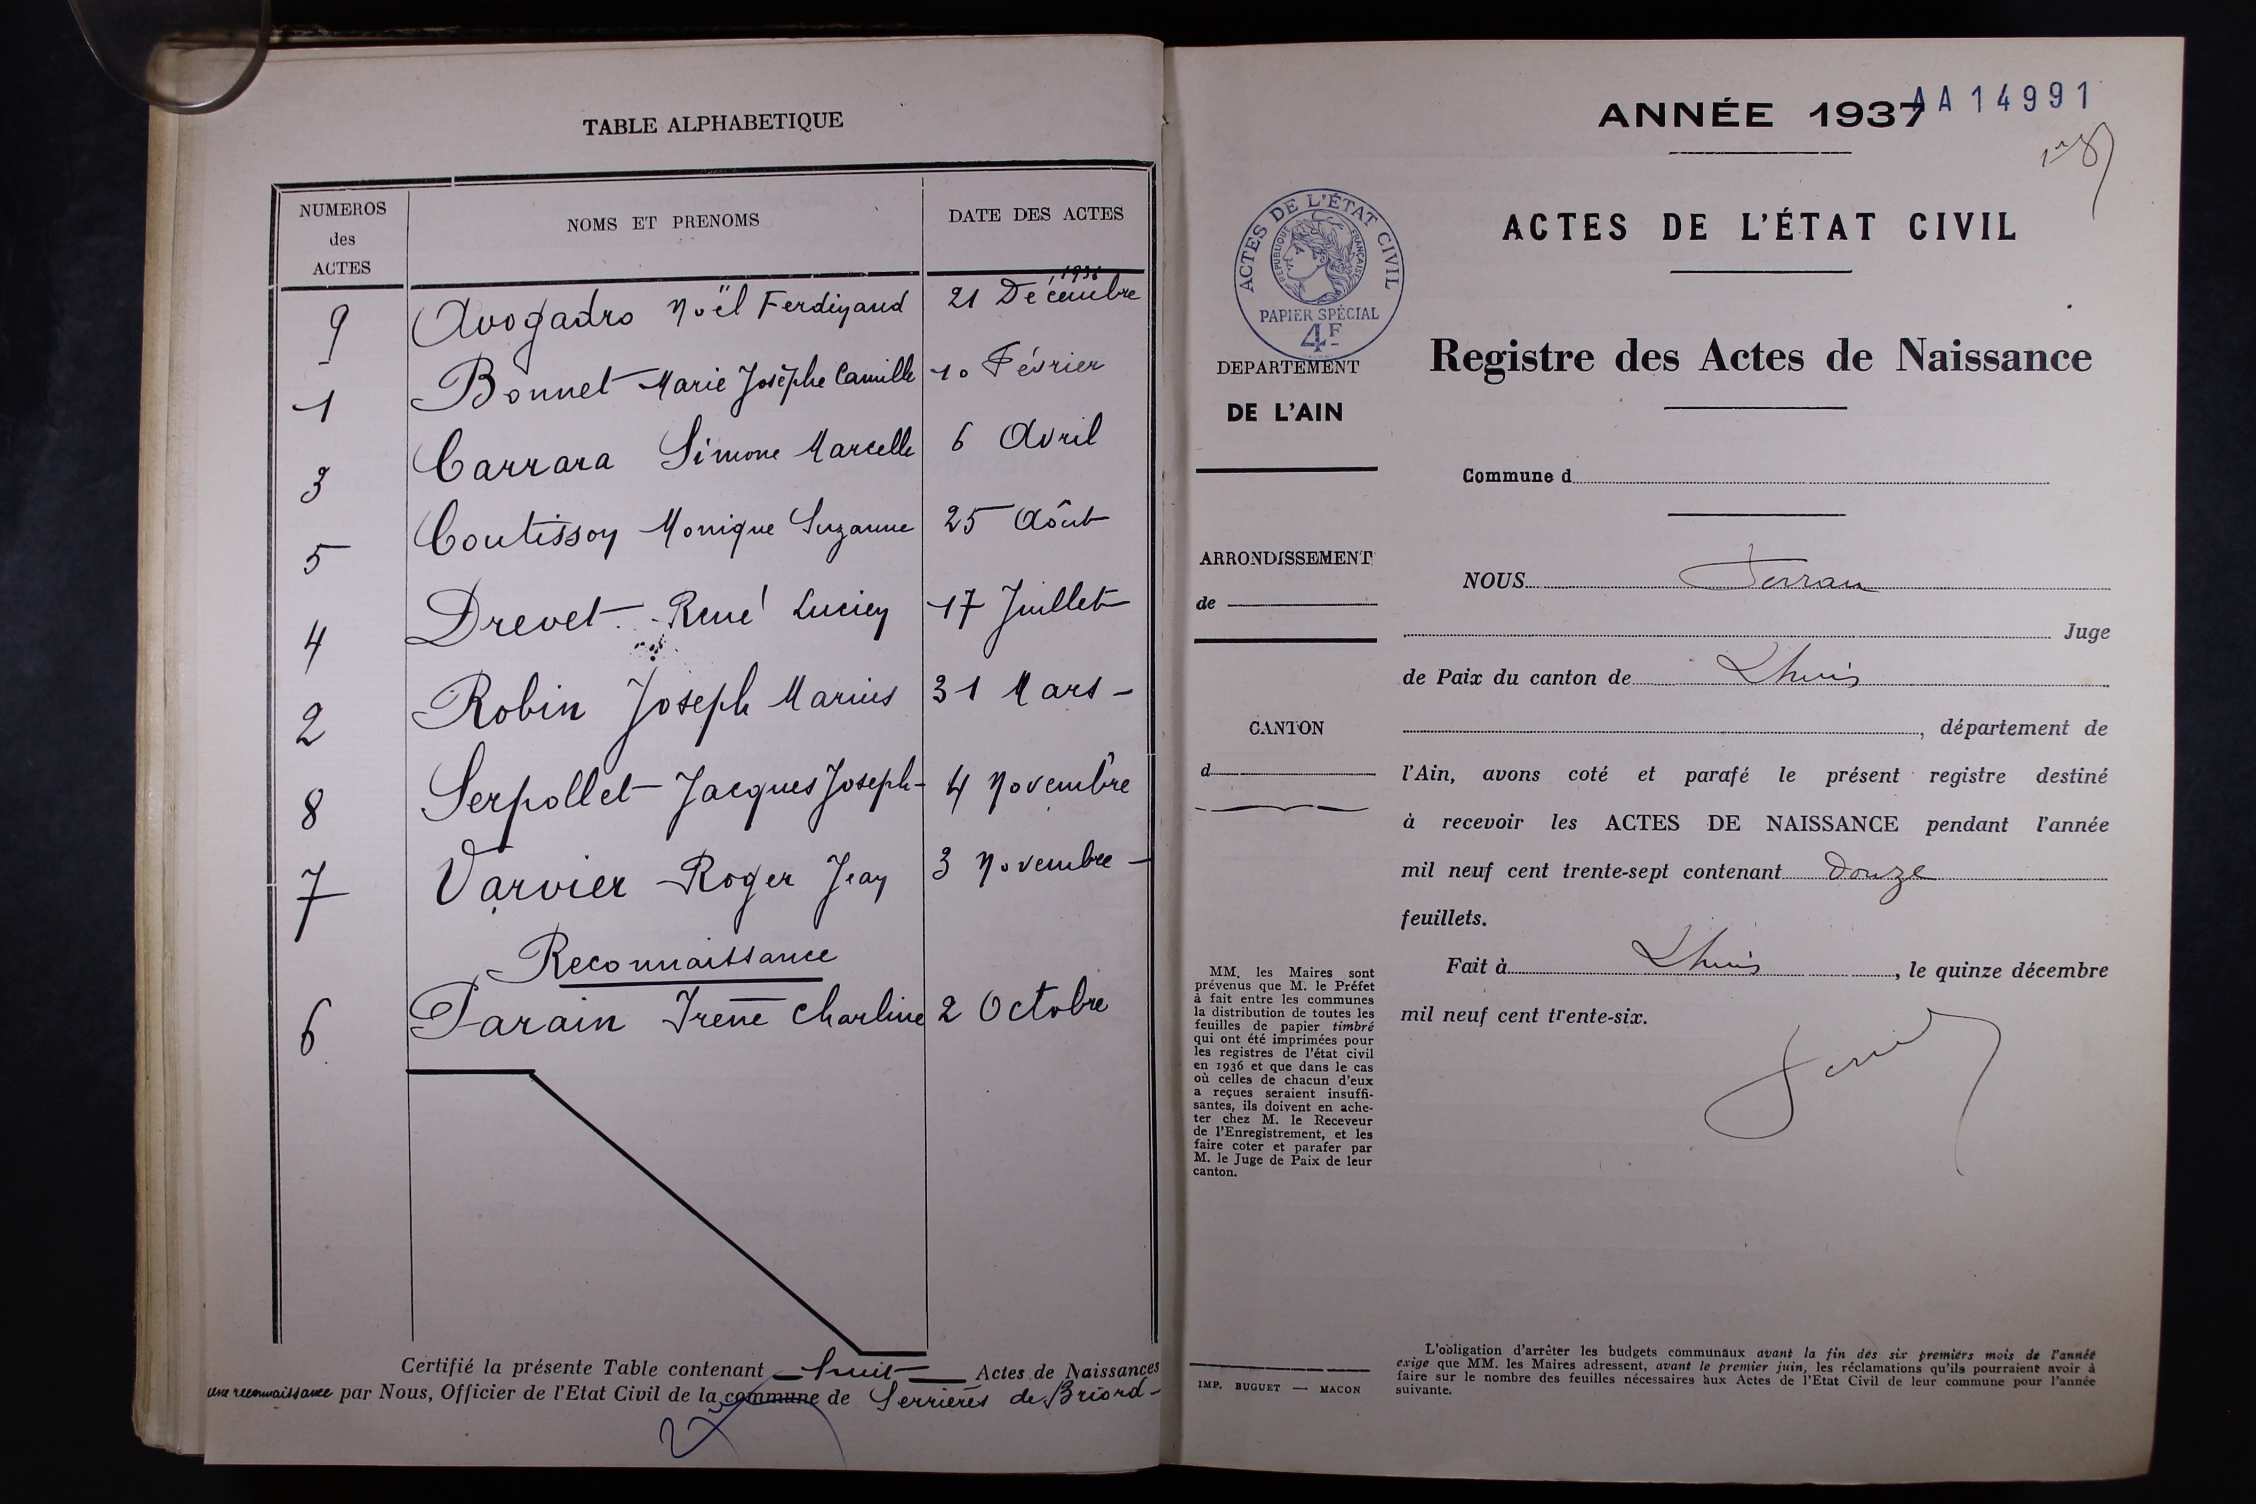 TABLE ALPHABETIQUE
NUMEROS
des
ACTES
NOMS ET PRENOMS
DATE DES ACTES
1936
9 Avogadro Noël Ferdinand 21 Décembre
1 Bonnet Marie Josèphe Camille 10 Février
3 Carrara Simone Marcelle 6 Avril
5 Coutisson Monique Suzanne 25 Aôut
4 Drevet René Lucien 17 Juillet
2 Robin Joseph Marius 31 Mars
8 Serpollet Jacques Joseph 4 Novembre
7 Varvier Roger Jean 3 Novembre
Reconnaissance
6 Parain Irène Charline 2 Octobre
Certifié la présente Table contenant huit Actes de Naissances
une reconnaissance par Nous, Officier de l'Etat Civil de la commune de Serrières de Briord
ANNÉE 1937
AA 14991
ACTES DE L'ÉTAT CIVIL
RÉPUBLIQUE FRANÇAISE
PAPIER SPÉCIAL
4F
ACTES DE L'ÉTAT CIVIL
Registre des Actes de Naissance
DEPARTEMENT
DE L'AIN
ARRONDISSEMENT
de
CANTON
d
MM. les Maires sont
prévenus que M. le Préfet
à fait entre les communes
la distribution de toutes les
feuilles de papier timbré
qui ont été imprimées pour
les registres de l'état civil
en 1936 et que dans le cas
où celles de chacun d'eux
a reçues seraient insuffi-
santes, ils doivent en ache-
ter chez M. le Receveur
de l'Enregistrement, et les
faire coter et parafer par
M. le Juge de Paix de leur
canton.
IMP. BUGUET — MACON
Commune d
NOUS
Juge
de Paix du canton de Lhuis
, département de
l'Ain, avons coté et parafé le présent registre destiné
à recevoir les ACTES DE NAISSANCE pendant l'année
mil neuf cent trente-sept contenant douze
feuillets.
Fait à Lhuis, le quinze décembre
mil neuf cent trente-six.
L'obligation d'arrêter les budgets communaux avant la fin des six premiers mois de l'année
exige que MM. les Maires adressent, avant le premier juin, les réclamations qu'ils pourraient avoir à
faire sur le nombre des feuilles nécessaires aux Actes de l'Etat Civil de leur commune pour l'année
suivante.